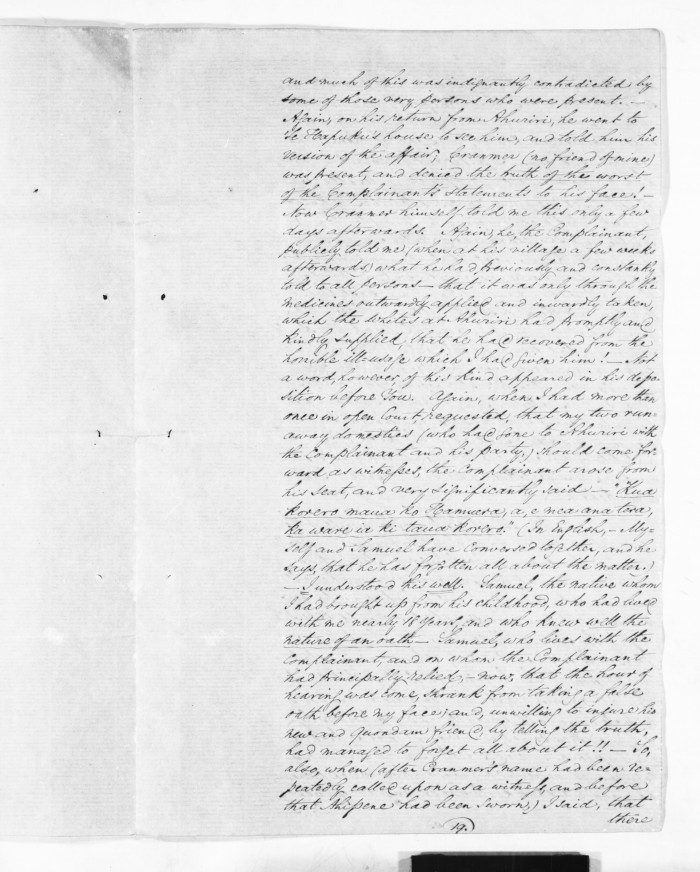 and much of this was indignantly contradicted by
some of those very persons who were present. —
Again, on his return from Ahuriri, he went to
Te Hapuku's house to see him, and told him his
version of the affair; Cranmer (no friend of mine)
was present, and denied the truth of the worst
of the Complainant's statements to his face! —
Now Cranmer himself told me this only a few
days afterwards. Again, he, the Complainant,
publicly told me (when at his village a few weeks
afterwards) what he had previously and constantly
told to all persons — that it was only through the
medicines outwardly applied and inwardly taken,
which the whites at Ahuriri had promptly and
kindly supplied, that he had recovered from the
horrible ill-usage which I had given him! — Not
a word, however, of this kind appeared in his depo-
sition before You. Again, when I had more than
once in open Court, requested, that my two run-
away domestics (who had gone to Ahuriri with
the Complainant and his party,) should come for-
ward as witnesses, the Complainant arose from
his seat, and very significantly said — "Kua
korero maua ko Hamuera, a, e mea ana tera,
ka ware ia ki taua korero." (In English, — My-
self and Samuel have conversed together, and he
says, that he has forgotten all about the matter.)
— I understood this well. Samuel, the native whom
I had brought up from his childhood, who had lived
with me nearly 18 years, and who knew well the
nature of an oath — Samuel, who lives with the
Complainant, and on whom the Complainant
had principally relied; — now, that the hour of
hearing was come, shrank from taking a false
oath before my face; and, unwilling to injure his
new and quondam friend by telling the truth,
had managed to forget all about it!! — So,
also, when (after Cranmer's name had been re-
peatedly called upon as a witness, and before
that Ahipene had been sworn,) I said, that
there
19.